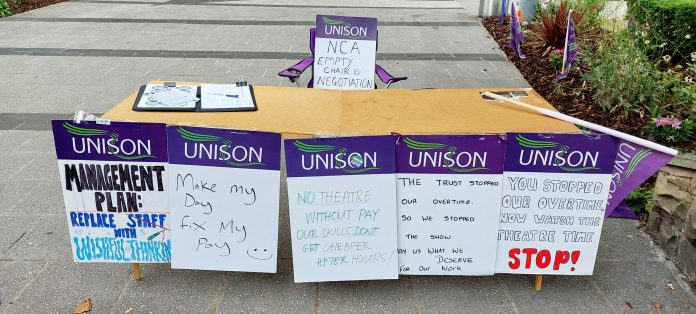 UNISON
NCA
EMPTY
CHAIR @
NEGOTIATION
UNISON
MANAGEMENT
PLAN:
REPLACE STAFF
WITH
WISHFUL THINKIN
UNISON
Make my
Day
fix My
Pay
UNISON
NO THEATRE
WITHOUT PAY
OUR SKILLS DON'T
GET CHEAPER
AFTER HOURS!
UNISON
THE TRUST STOPPED
OUR OVERTIME.
SO WE STOPPED
THE SHOW.
PAY US WHAT WE
DESERVE
FOR OUR WORK
UNISON
YOU STOPPED
OUR OVERTIME
NOW WATCH THE
THEATRE TIME
STOP!
UNISON